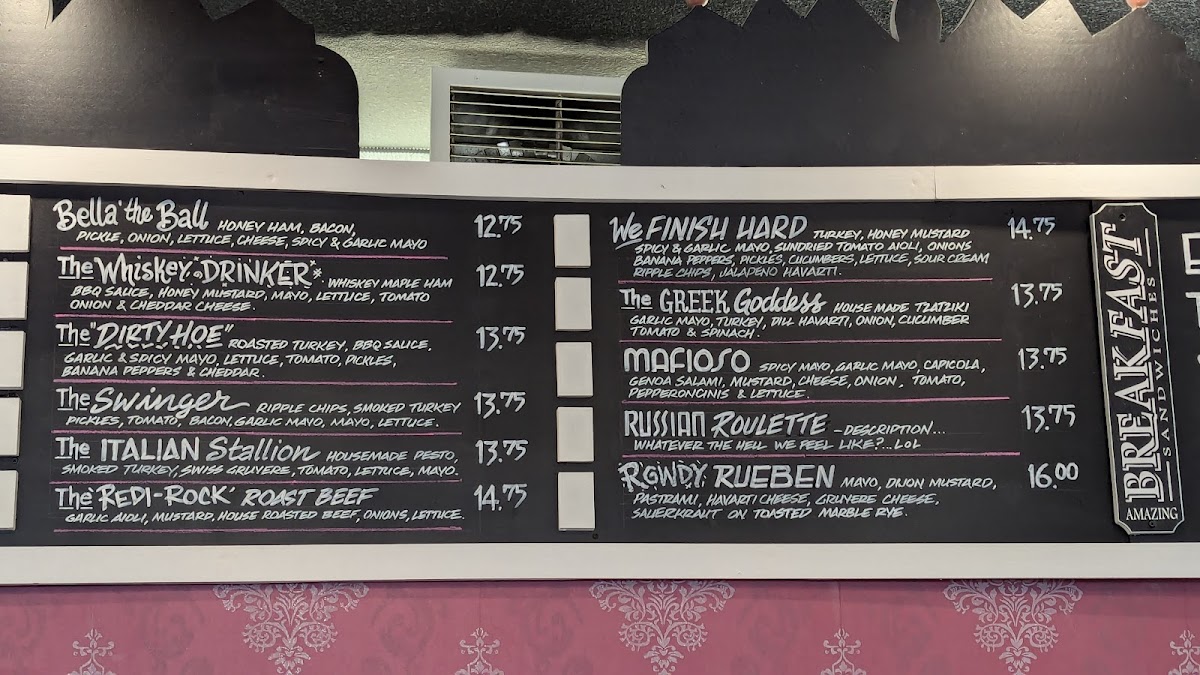 Bella' the Ball HONEY HAM, BACON, 12.75
PICKLE, ONION, LETTUCE, CHEESE, SPICY & GARLIC MAYO
The Whiskey "DRINKER" WHISKEY MAPLE HAM 12.75
BBQ SAUCE, HONEY MUSTARD, MAYO, LETTUCE, TOMATO
ONION & CHEDDAR CHEESE.
The "DIRTY HOE" ROASTED TURKEY, BBQ SAUCE, 13.75
GARLIC & SPICY MAYO, LETTUCE, TOMATO, PICKLES,
BANANA PEPPERS & CHEDDAR.
The Swinger RIPPLE CHIPS, SMOKED TURKEY 13.75
PICKLES, TOMATO, BACON, GARLIC MAYO, MAYO, LETTUCE.
The ITALIAN Stallion HOUSEMADE PESTO, 13.75
SMOKED TURKEY, SWISS GRUYERE, TOMATO, LETTUCE, MAYO.
The REDI-ROCK' ROAST BEEF 14.75
GARLIC AIOLI, MUSTARD, HOUSE ROASTED BEEF, ONIONS, LETTUCE.
We FINISH HARD TURKEY, HONEY MUSTARD 14.75
SPICY & GARLIC MAYO, SUNDRIED TOMATO AIOLI, ONIONS
BANANA PEPPERS, PICKLES, CUCUMBERS, LETTUCE, SOUR CREAM
RIPPLE CHIPS, JALAPENO HAVARTI.
The GREEK Goddess HOUSE MADE TZATZIKI 13.75
GARLIC MAYO, TURKEY, DILL HAVARTI, ONION, CUCUMBER
TOMATO & SPINACH.
MAFIOSO SPICY MAYO, GARLIC MAYO, CAPICOLA, 13.75
GENOA SALAMI, MUSTARD, CHEESE, ONION, TOMATO,
PEPPERONCINIS & LETTUCE.
RUSSIAN ROULETTE - DESCRIPTION... 13.75
WHATEVER THE HELL WE FEEL LIKE?...LOL
ROWDY RUEBEN MAYO, DIJON MUSTARD, 16.00
PASTRAMI, HAVARTI CHEESE, GRUYERE CHEESE,
SAUERKRAUT ON TOASTED MARBLE RYE.
BREAKFAST
SANDWICHES
AMAZING